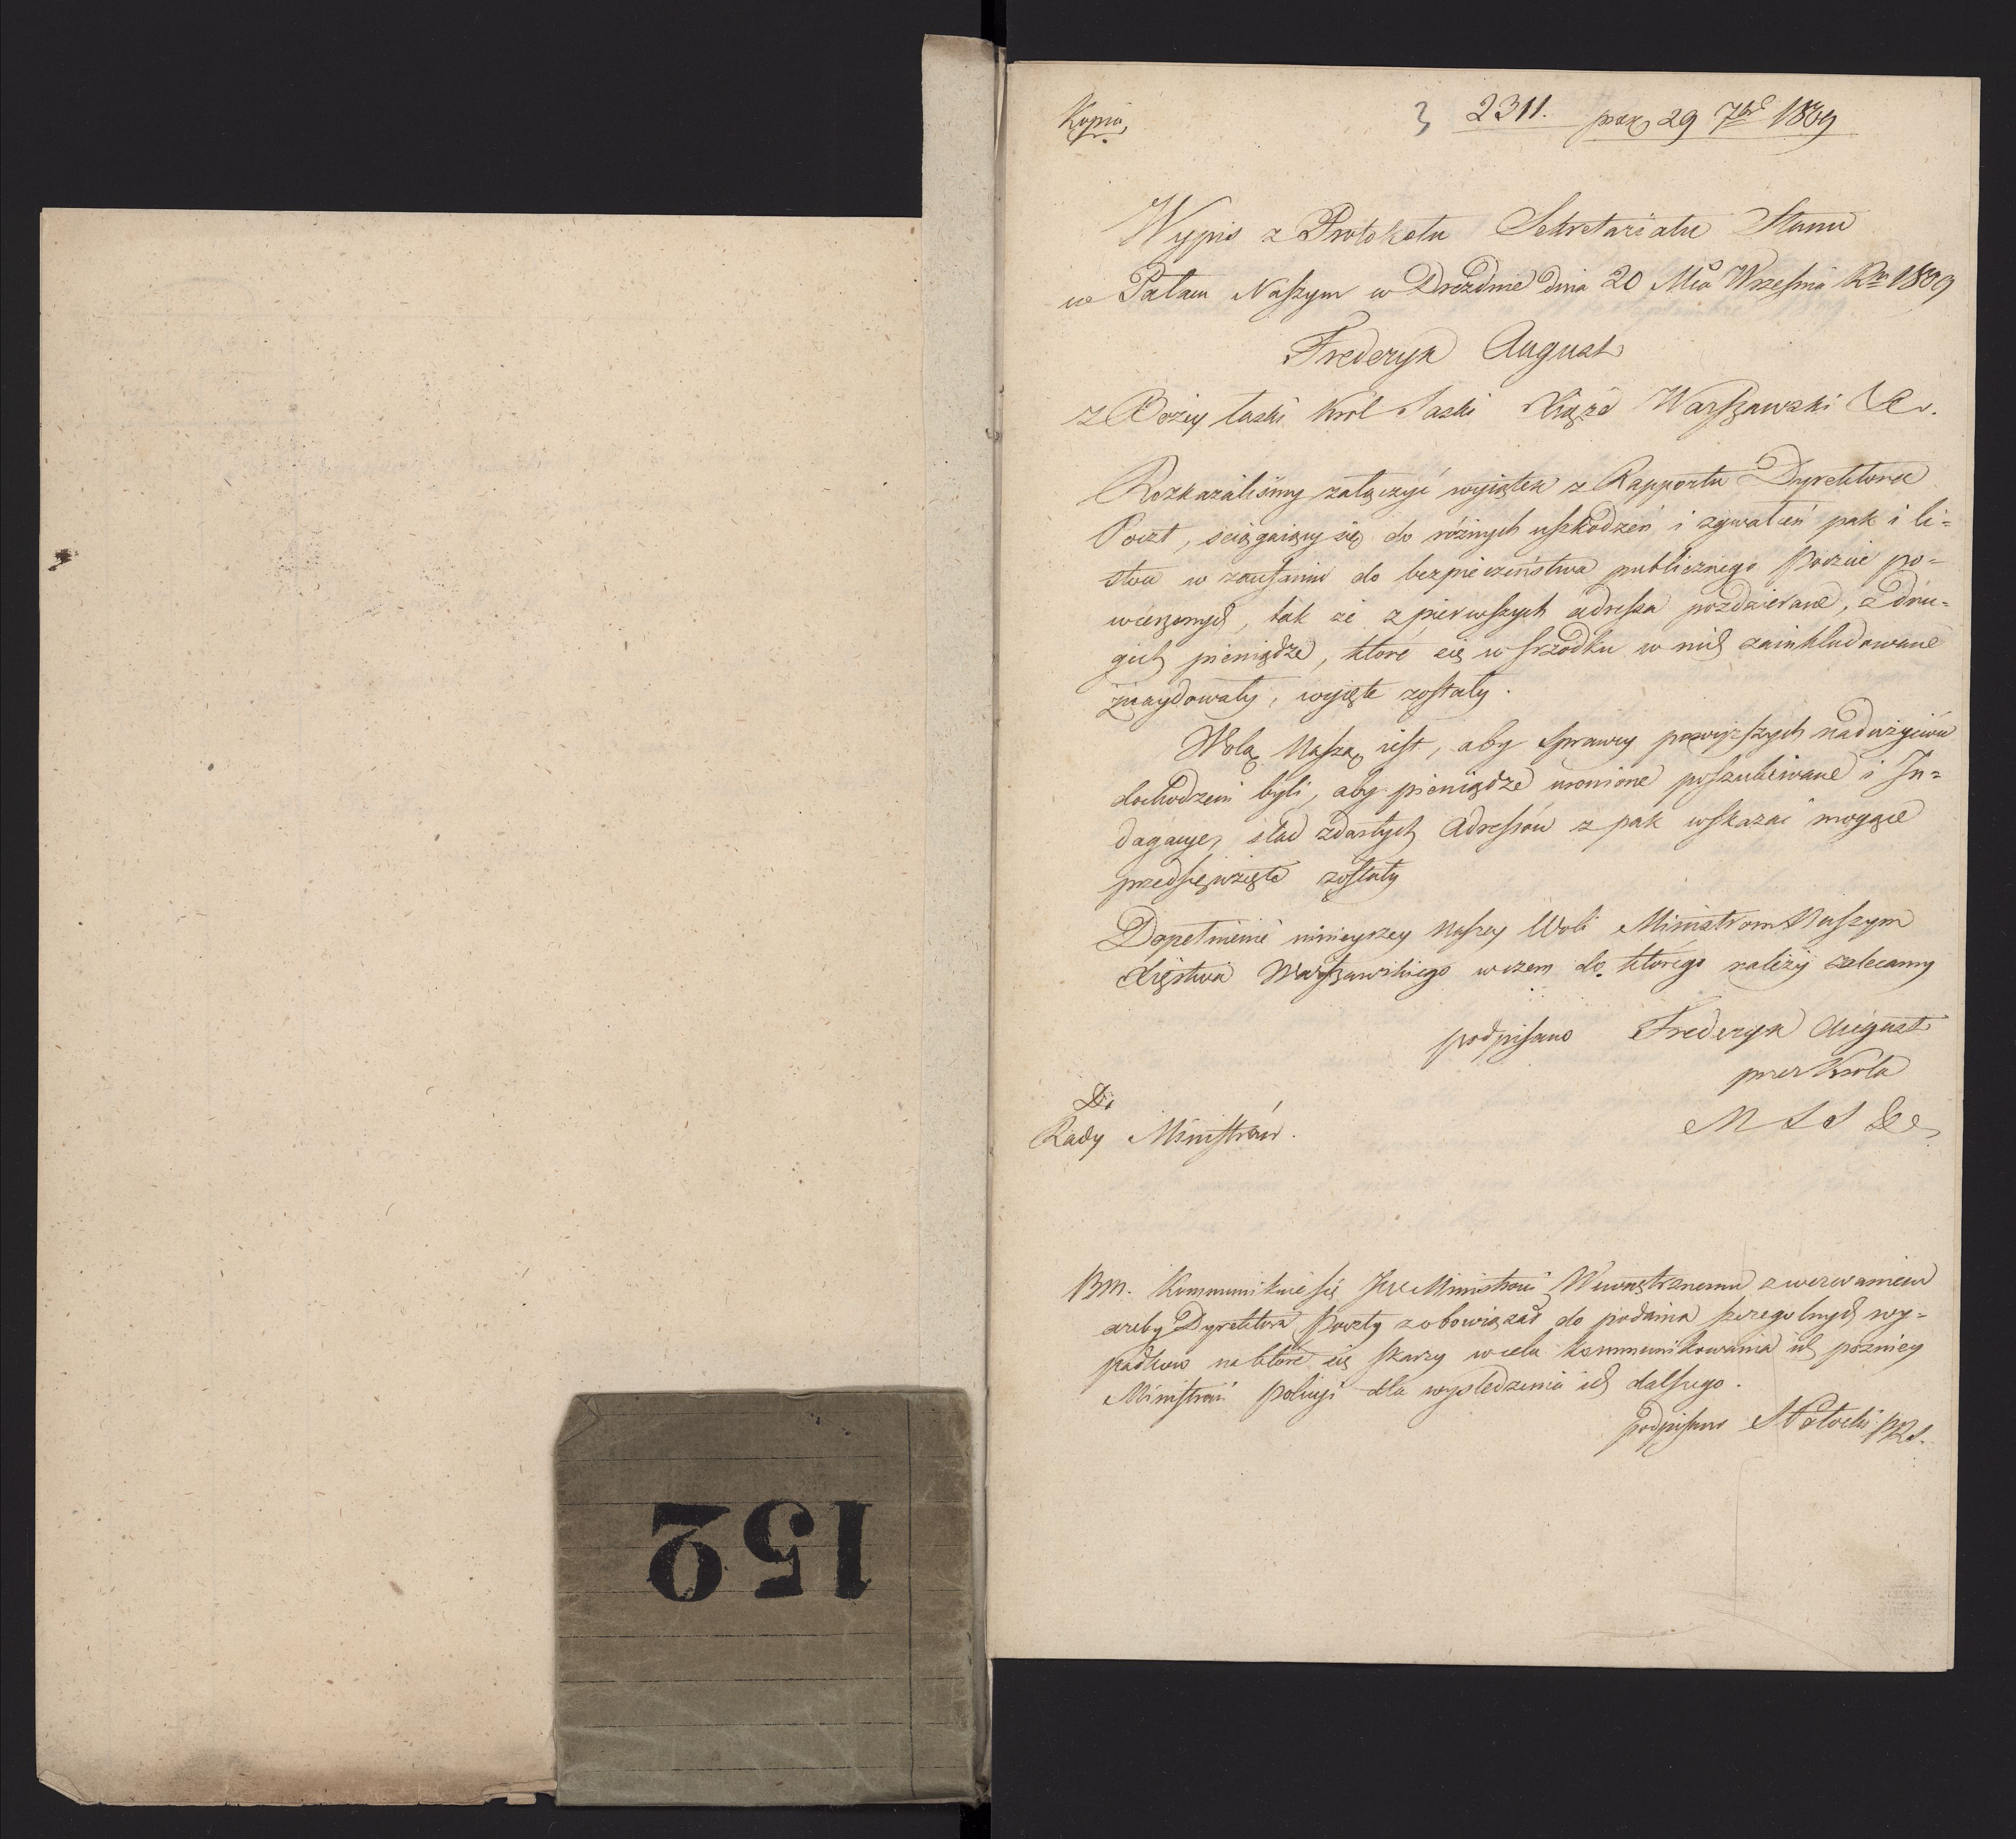 Kopia,
3 2311. prax 29 7br 1809
Wypis z Protokołu Sekretariatu Stanu
w Pałacu Naszym w Dreźdnie dnia 20 Mca Wrzesnia Rku 1809
Frederyk August
z Bożey łaski Król Saski Xiąże Warszawski &c.
Rozkazaliśmy załączyć wyiątek z Rapportu Dyrektora
Poczt, sciągaiący się do różnych uszkodzeń i zgwałceń pak i li=
stów w zaufaniu do bezpieczeństwa publicznego Poczcie po=
wierzonych, tak że z pierwszych adressa pozdzierane, z dru=
gich pieniądze, które się w srzodku w nich zainkludowane
znaydowały, wyięte zostały.
Wolą Naszą iest, aby sprawcy powyższych nadużyciów
dochodzeni byli, aby pieniądze uronione poszukiwane i In=
dagacye, slad zdartych Adressów z pak wskazać mogące
przedsięwzięte zostały
Dopełnienie ninieyszey Naszey Woli Ministrom Naszym
Xięstwa Warszawskiego w czem do którego należy zalecamy
podpisano Frederyk August
przez Króla
M S S &c
Do
Rady Ministrów.
BM. Kommunikuie się JW Ministrowi Wewnętrznemu z wezwaniem
ażeby Dyrektora Poczty zobowiązał do podania szczegolnych wy=
padków na które się skarży w celu kommunikowania ich pozniey
Ministrowi Policyi dla wysledzenia ich dalszego.
podpisano S Potocki PRS.
152